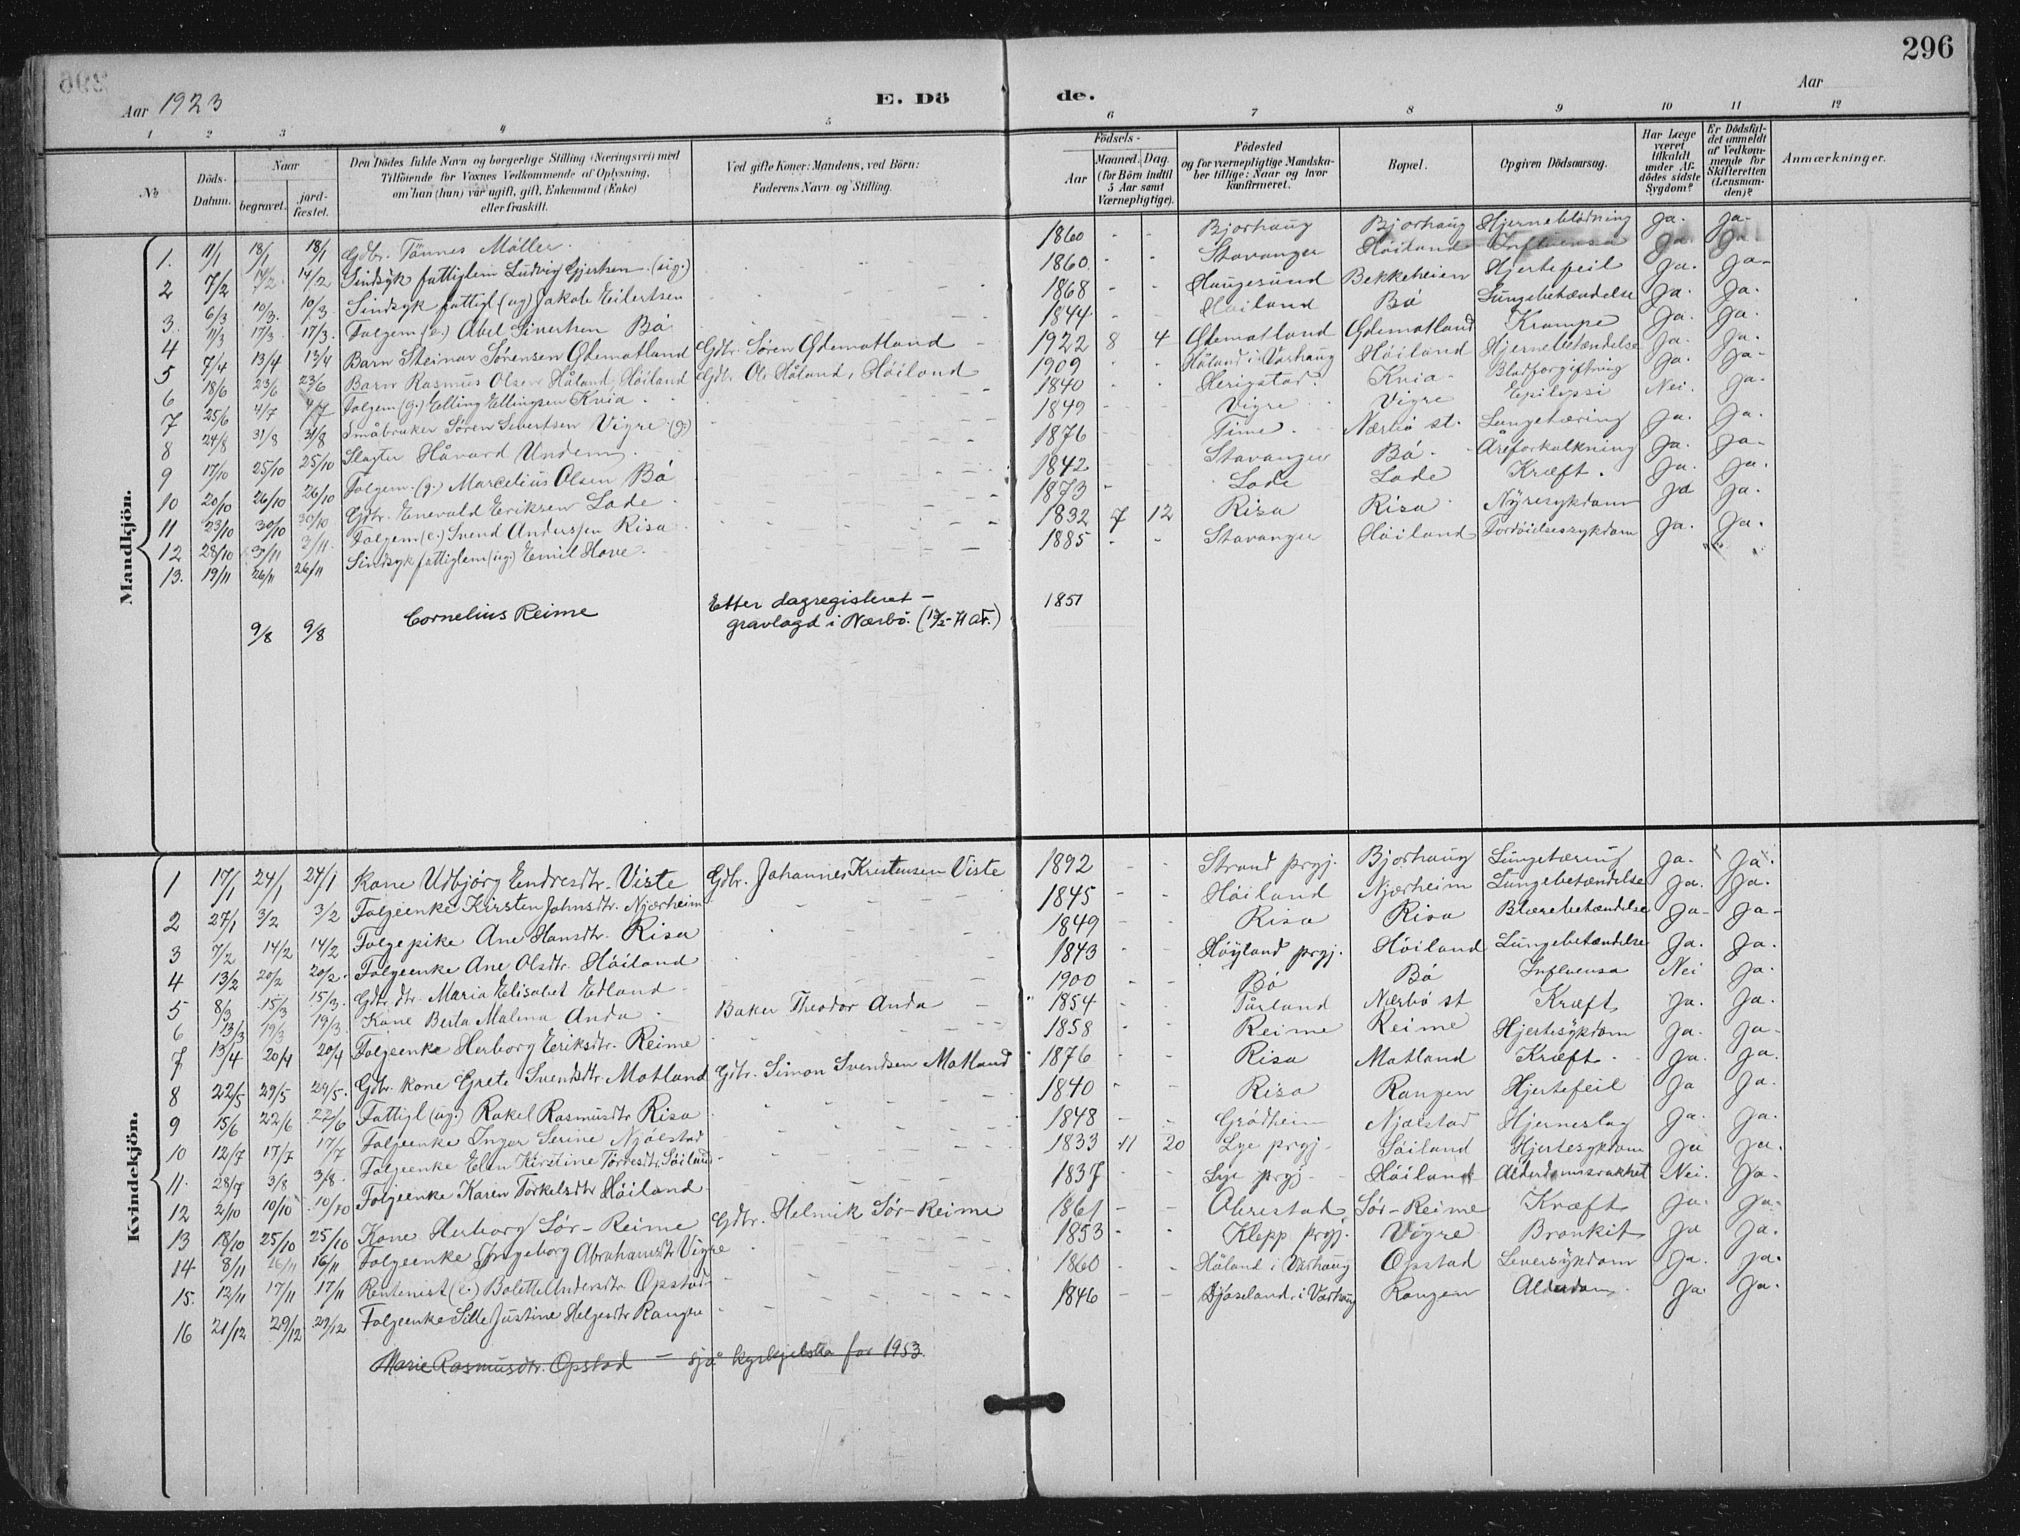 296
Aar 1923 E. Dö de. Aar
1 2 3 4 5 6 7 8 9 10 11 12
No Döds-Datum. Naar begravet. jord-fæstet. Den Dödes fulde Navn og borgerlige Stilling (Næringsvei) med Tilföiende for Voxnes Vedkommende af Oplysning, om han (hun) var ugift, gift, Enkemand (Enke) eller fraskilt. Ved gifte Koner: Mandens, ved Börn: Faderens Navn og Stilling. Födsels- Aar Maaned. Dag. (for Börn indtil 5 Aar samt Værnepligtige). Födested og for værnepligtige Mandskaber tillige: Naar og hvor konfirmeret. Bopæl. Opgiven Dödsaarsag. Har Læge været tilkaldt under Afdödes sidste Sygdom? Er Dödsfaldet anmeldt af Vedkommende for Skifteretten (Lensmanden)? Anmærkninger.
Mandkjön.
1. 11/1 18/1 18/1 Gdbr. Tönnes Möller. 1860 - - Bjorhaug Bjorhaug Hjerneblödning Ja. Ja-
2 7/2 14/2 14/2 Sindsyk fattiglem Ludvig Gjertsen (ug.) 1860. - - Stavanger Höiland Influensa Ja. Ja
3. 6/3 10/3. 10/3 Sindsyk fattigl (ug) Jakob Eilertsen 1868 - - Haugesund Bekkeheien Hjertefeil Ja. Ja-
4 11/3 17/3 17/3. Folgem (e.) Abel Sivertsen Bö 1844 - - Höiland Bö Lungebetændelse Ja. Ja.
5 7/4 13/4 13/4 Barn Steinar Sörensen Ödemotland Gdbr. Sören Ödemotland - 1922 8 4 Ödemotland Ödemotland Krampe Ja. Ja.
6 18/6 23/6 23/6 Barn Rasmus Olsen Håland, Höiland Gdbr. Ole Håland, Höiland 1909 - - Håland i Varhaug Höiland Hjernebetændelse Ja. Ja.
7 25/6 4/7 4/7 Folgem (g.) Elling Ellingsen Kvia. 1840 - - Herigstad. Kvia. Blodforgiftning Ja. Ja-
8 24/8 31/8 31/8 Småbruker Sören Sivertsen Vigre (g.) 1849 - - Vigre. Vigre Epilepsi Nei. Ja.
9 17/10 25/10 25/10 Slagter Håvard Undem. 1876 - - Time. Nærbö st. Lungetæring Ja. Ja.
10 20/10 26/10 26/10 Folgem. (g.) Marcelius Olsen Bö 1842 - - Stavanger Bö. Åreforkalkning Ja. Ja-
11 23/10 30/10 30/10 Gdbr. Enevald Eriksen Lode. 1873 - - Lode Lode Kræft. Ja. Ja.
12 28/10 3/11 3/11. Folgem (e.) Svend Anderssen Risa. 1832 7 12 Risa Risa. Nyresykdom Ja Ja.
13. 19/11 26/11 26/11 Sindsyk fattiglem (ug.) Emil Hove. 1885 - - Stavanger Höiland Fordöielsessykdom Ja. Ja.
9/8 9/8 Cornelius Reime Etter dagregisteret - 1851
gravlagd i Nærbö.
Kvindekjön.
1 17/1 24/1 24/1 Kone Udbjörg Endresdtr. Viste Gdbr. Johannes Kristensen Viste 1892 - - Strand prgj. Bjorhaug Lungetæring Ja- Ja.
2 27/1 3/2 3/2 Folgeenke Kirsten Johnsdtr. Njærheim 1845 - - Höiland Njærheim Lungebetændelse Ja. Ja.
3 7/2 14/2 14/2 Folgepike Ane Hansdtr. Risa 1849 - - Risa Risa Blærebetændelse Ja- Ja-
4 13/2 20/2 20/2. Folgeenke Ane Olsdtr. Höiland 1843 - - Höyland prgj. Höiland Lungebetændelse Ja. Ja.
5 8/3 15/3 15/3. Gdbr. dtr. Maria Elisabet Edland - 1900 - - Bö Bö Influensa Nei Ja.
6 13/3 19/3 19/3. Kone Berta Malena Anda. Baker Theodor Anda - 1854 - - Tårland Nærbö st Kræft Ja. Ja.
7 13/4 20/4 20/4 Folgeenke Herborg Eriksdtr. Reime 1858 - - Reime Reime Hjertesykdom Ja. Ja-
8 22/5 29/5 29/5. Gdbr. kone Grete Svendsdtr. Motland Gdbr. Simon Svendsen Motland 1876 - - Risa Motland Kræft. Ja. Ja.
9 15/6 22/6 22/6 Fattigl (ug.) Rakel Rasmusdtr. Risa 1840 - - Risa Rangen Hjertefeil Ja Ja.
10 12/7 17/7 17/7 Folgeenke Inger Serine Njölstad 1848 - - Grödheim Njölstad Hjerneslag Ja. Ja.
11. 28/7 3/8 3/8. Folgeenke Elen Kirstine Torresdtr. Söiland 1833 11 20 Lye prgj. Söiland Hjertesykdom Ja Ja.
12 2/10 10/10 10/10 Folgeenke Karen Torkelsdtr Höiland 1837 - - Lye prgj. Höiland Alderdomssvakhet Nei. Ja.
13 18/10 25/10 25/10 Kone Herborg Sör-Reime Gdbr. Helmik Sör-Reime 1861 - - Obrestad Sör-Reime Kræft Ja. Ja-
14 8/11 16/11 16/11 Folgeenke Ingeborg Abrahamsdtr Vigre 1853 - - Klepp prgj. Vigre Bronkit Ja Ja.
15. 12/11 17/11 17/11 Rentenist (e.) Bolette Andersdtr Opstad 1860 - - Håland i Varhaug Opstad Leversykdom Ja. Ja.
16 21/12 29/12 29/12 Folgeenke Sille Justine Helgesdtr Rangen 1846 - - i Varhaug Rangen Alderdom. Ja. Ja.
Marie Rasmusdtr. Opstad - sjå kyrkjeboka for 1953.